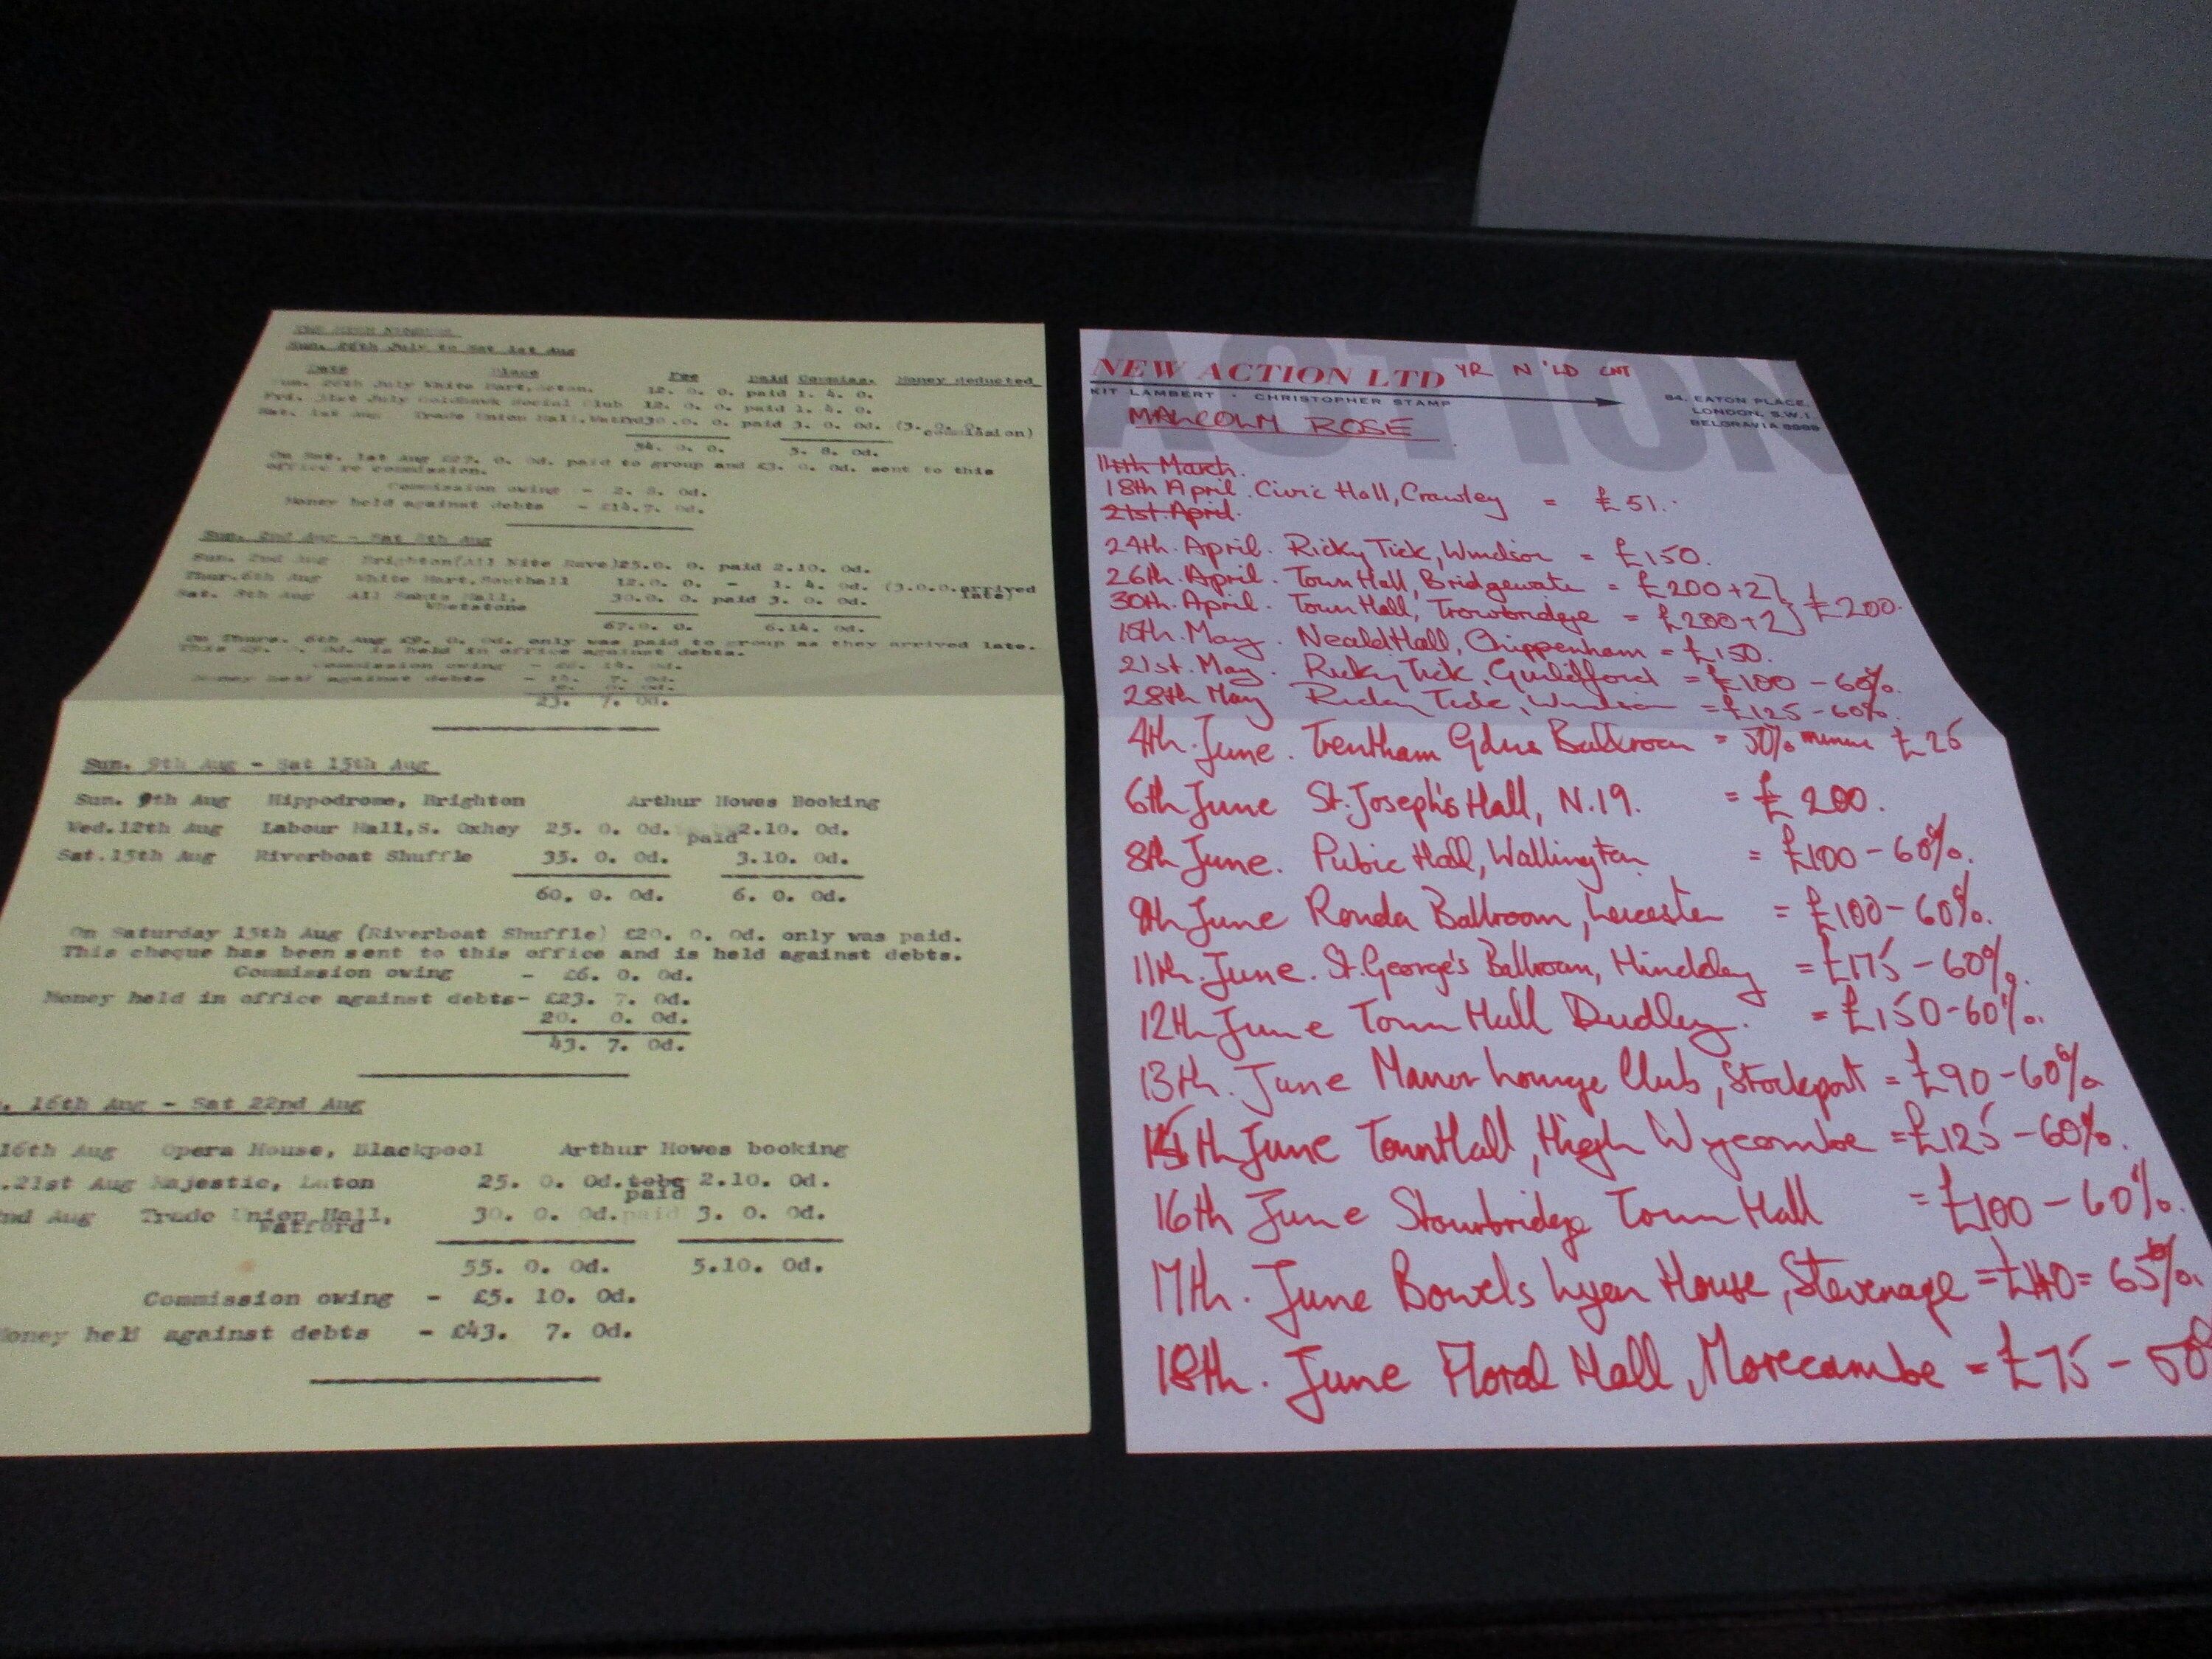 Sun. 26th July to Sat 1st Aug
Date Place Fee Paid Commiss. Money deducted
Sun. 26th July White Hart, Acton. 12. 0. 0. paid 1. 4. 0.
Fri. 31st July Goldhawk Social Club 12. 0. 0. paid 1. 4. 0.
Sat. 1st Aug Trade Union Hall, Watford 30. 0. 0. paid 3. 0. 0d. (3. 0. 0. commission)
54. 0. 0. 5. 8. 0d.
On Sat. 1st Aug £27. 0. 0d. paid to group and £3. 0. 0d. sent to this
office re commission.
Commission owing - 2. 8. 0d.
Money held against debts - £14.7. 0d.
Sun. 2nd Aug - Sat 8th Aug
Sun. 2nd Aug Brighton(All Nite Rave)25.0. 0. paid 2.10. 0d.
Thur.6th Aug White Hart, Southall 12.0. 0. - 1. 4. 0d. (3.0.0.arrived late)
Sat. 8th Aug All Saints Hall, Whetstone 30.0. 0. paid 3. 0. 0d.
67.0. 0. 6.14. 0d.
On Thurs. 6th Aug £9. 0. 0d. only was paid to group as they arrived late.
This is held in office against debts.
Commission owing - £6. 14. 0d.
Money held against debts
23. 7. 0d.
Sun. 9th Aug - Sat 15th Aug
Sun. 9th Aug Hippodrome, Brighton Arthur Howes Booking
Wed.12th Aug Labour Hall,S. Oxhey 25. 0. 0d. paid 2.10. 0d.
Sat.15th Aug Riverboat Shuffle 35. 0. 0d. 3.10. 0d.
60. 0. 0d. 6. 0. 0d.
On Saturday 15th Aug (Riverboat Shuffle) £20. 0. 0d. only was paid.
This cheque has been sent to this office and is held against debts.
Commission owing - £6. 0. 0d.
Money held in office against debts- £23. 7. 0d.
20. 0. 0d.
43. 7. 0d.
. 16th Aug - Sat 22nd Aug
16th Aug Opera House, Blackpool Arthur Howes booking
.21st Aug Majestic, Luton 25. 0. 0d. tobe paid 2.10. 0d.
nd Aug Trade Union Hall, Watford 30. 0. 0d. paid 3. 0. 0d.
55. 0. 0d. 5.10. 0d.
Commission owing - £5. 10. 0d.
oney held against debts - £43. 7. 0d.
ACTION
NEW ACTION LTD YR N 'LD CNT
KIT LAMBERT · CHRISTOPHER STAMP
84, EATON PLACE,
LONDON, S.W.1.
BELGRAVIA
MALCOLM ROSE
14th March.
18th April. Civic Hall, Crawley = £51.
21st. April.
24th. April. Ricky Tick, Windsor = £150.
26th. April. Town Hall, Bridgewate = £200+2
30th. April. Town Hall, Trowbridge = £200+2 } £200.
18th. May. Neald Hall, Chippenham = £150.
21st. May. Ricky Tick, Guildford = £100 - 60%.
28th May Ricky Tick, Windsor = £125 - 60%.
4th. June. Trentham Gdns Ballroom = 50% minus £25
6th June St. Joseph's Hall, N.19. = £200.
8th June. Pubic Hall, Wallington = £100 - 60%.
9th June Ronda Ballroom, Leicester = £100 - 60%.
11th. June. St. George's Ballroom, Hinckley = £175 - 60%.
12th June Town Hall Dudley. = £150 - 60%.
13th. June Manor Lounge Club, Stockport = £90 - 60%
15th June Town Hall, High Wycombe = £125 - 60%.
16th June Stourbridge Town Hall = £100 - 60%.
17th. June Bowels Lyen House, Stevenage = £140 = 65%.
18th. June Floral Hall, Morecambe = £75 - 50%